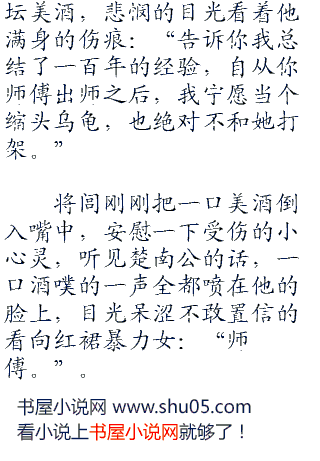 坛美酒，悲悯的目光看着他
满身的伤痕：“告诉你我总
结了一百年的经验，自从你
师傅出师之后，我宁愿当个
缩头乌龟，也绝对不和她打
架。”
将闾刚刚把一口美酒倒
入嘴中，安慰一下受伤的小
心灵，听见楚南公的话，一
口酒噗的一声全都喷在他的
脸上，目光呆涩不敢置信的
看向红裙暴力女：“师
傅。”。
书屋小说网 www.shu05.com
看小说上书屋小说网就够了！